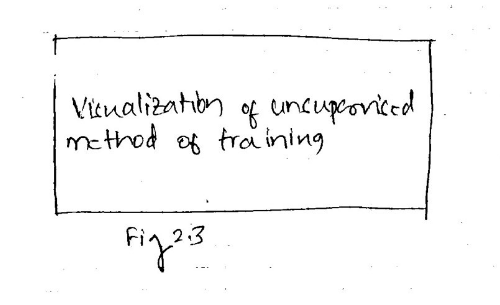 Visualization of unsupervised
method of training
Fig 2.3